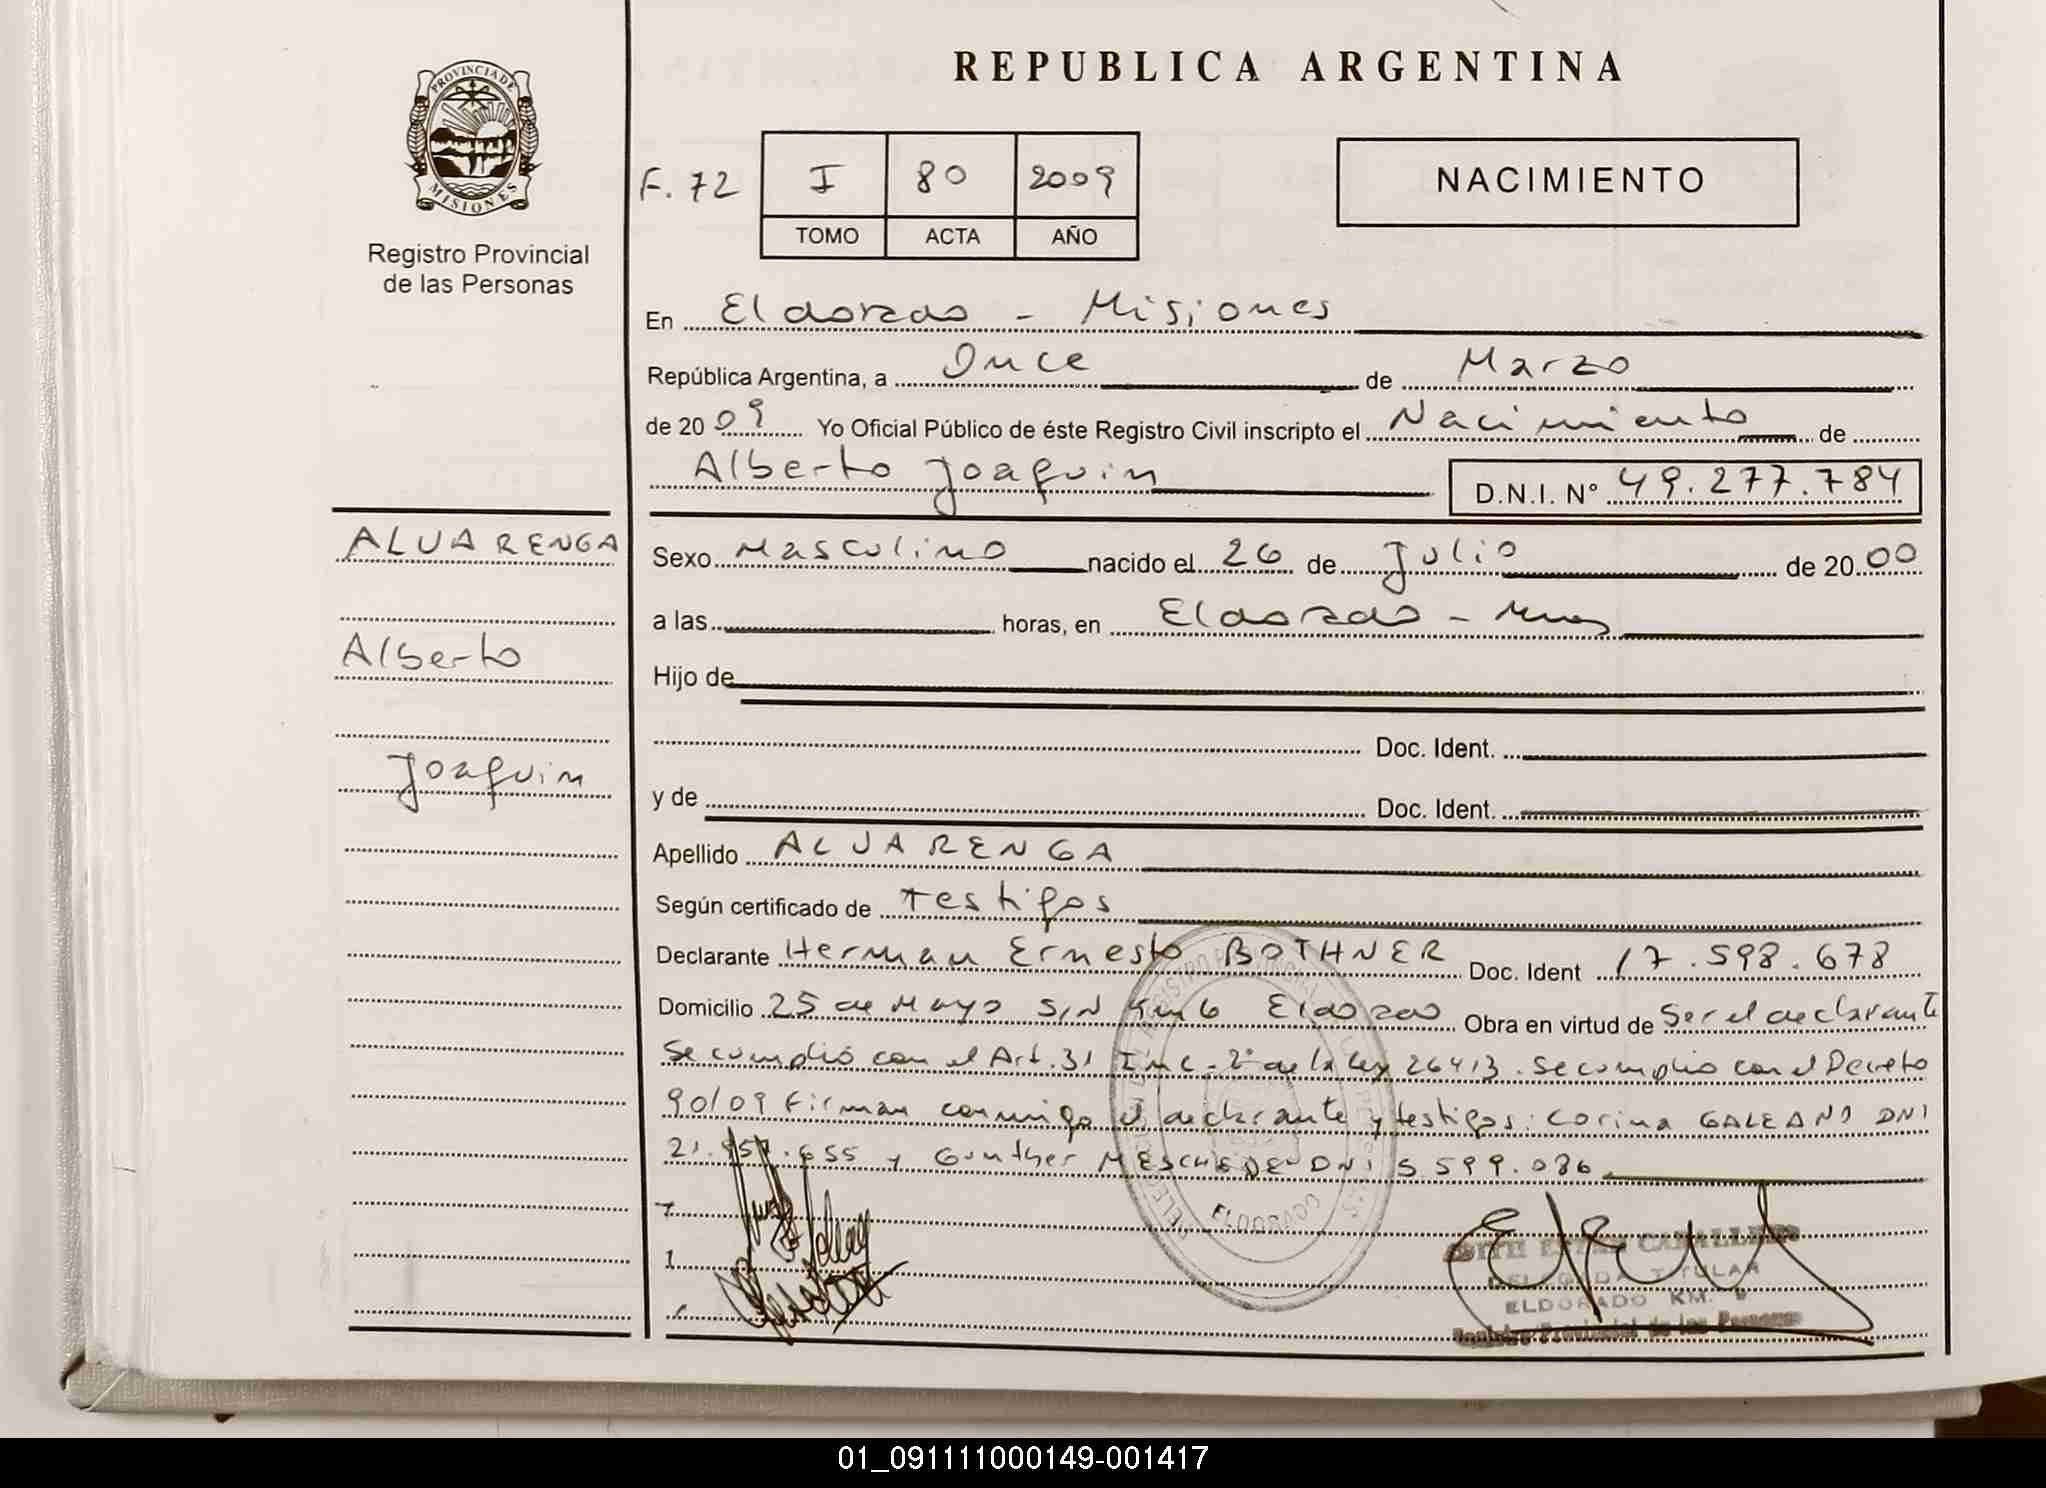 REPUBLICA ARGENTINA
PROVINCIA DE
MISIONES
Registro Provincial
de las Personas
F. 72 I 80 2009
TOMO ACTA AÑO
NACIMIENTO
En Eldorado - Misiones
República Argentina, a Once de Marzo
de 2009 Yo Oficial Público de éste Registro Civil inscripto el Nacimiento de
Alberto Joaquin D.N.I. Nº 49.277.784
ALVARENGA
Alberto
Joaquin
Sexo Masculino nacido el 26 de Julio de 2000
a las horas, en Eldorado - Mnes
Hijo de
Doc. Ident.
y de Doc. Ident.
Apellido ALVARENGA
Según certificado de testigos
Declarante Herman Ernesto BOTHNER Doc. Ident 17.598.678
Domicilio 25 de Mayo S/N Km 6 Eldorado Obra en virtud de Ser el declarante
Se cumplió con el Art. 31 Inc. 2º de la Ley 26413. Se cumplio con el Decreto
90/09 Firman conmigo el declarante y testigos: Corina GALEANO DNI
21.957.655 y Gunther DNI 5.599.086
DELEGADA TITULAR
ELDORADO KM.
Registro Provincial de las Personas
01_091111000149-001417